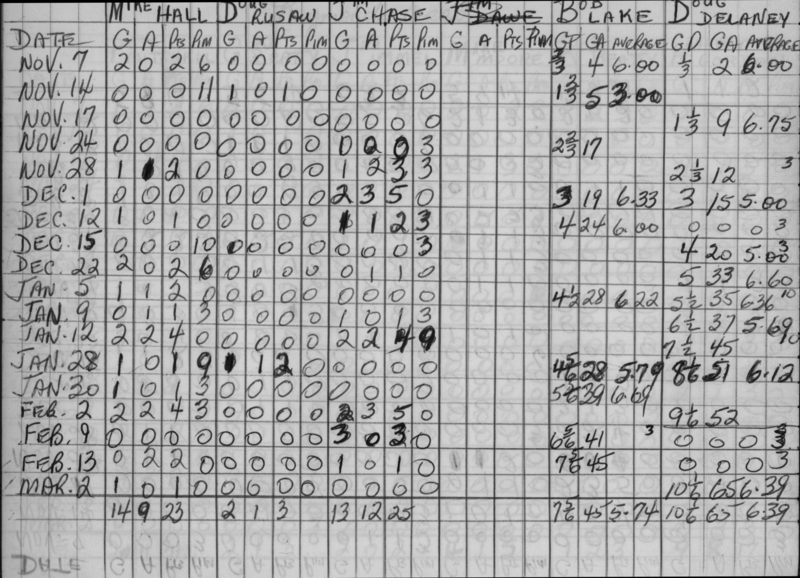 MIKE HALL DOUG RUSAW JIM CHASE JIM DAWE BOB LAKE DOUG DELANEY
DATE G A Pts Pim G A PTS PIM G A PTS PIM G A PTS PIM GP GA AVERAGE GP GA AVERAGE
NOV. 7 2 0 2 6 0 0 0 0 0 0 0 0 4 6.00 1/3 2 6.00
NOV. 14 0 0 0 11 1 0 1 0 0 0 0 0 1 2/3 5 3.00
NOV. 17 0 0 0 0 0 0 0 0 0 0 0 0 1 1/3 9 6.75
NOV. 24 0 0 0 0 0 0 0 0 0 0 0 3 2 2/3 17
NOV. 28 1 1 2 0 0 0 0 0 1 2 3 3 2 1/3 12 3
DEC. 1 0 0 0 0 0 0 0 0 2 3 5 0 3 19 6.33 3 15 5.00
DEC. 12 1 0 1 0 0 0 0 0 1 1 2 3 4 24 6.00 0 0 0 3
DEC. 15 0 0 0 10 0 0 0 0 0 0 0 3 4 20 5.00 3
DEC. 22 2 0 2 6 0 0 0 0 0 1 1 0 5 33 6.60
JAN. 5 1 1 2 0 0 0 0 0 0 0 0 0 4 1/2 28 6.22 5 1/2 35 6.36 10
JAN. 9 0 1 1 3 0 0 0 0 1 0 1 3 6 1/2 37 5.69
JAN. 12 2 2 4 0 0 0 0 0 2 2 4 9 7 1/2 45
JAN. 28 1 0 1 9 0 1 2 0 0 0 0 4 5/6 28 5.79 8 1/6 51 6.12
JAN. 30 1 0 1 3 0 0 0 0 0 0 0 0 5 5/6 39 6.69
FEB. 2 2 2 4 3 0 0 0 0 2 3 5 0 9 1/6 52
FEB. 9 0 0 0 0 0 0 0 0 3 0 3 0 6 5/6 41 3 0 0 0 3
FEB. 13 0 2 2 0 0 0 0 0 1 0 1 0 7 5/6 45 0 0 0 3
MAR. 2 1 0 1 0 0 0 0 0 0 0 0 0 10 1/6 65 6.39
14 9 23 2 1 3 13 12 25 7 5/6 45 5.74 10 1/6 65 6.39
DATE G A Pts Pim G A Pts Pim G A Pts Pim G A Pts Pim GP GA AVERAGE GP GA AVERAGE